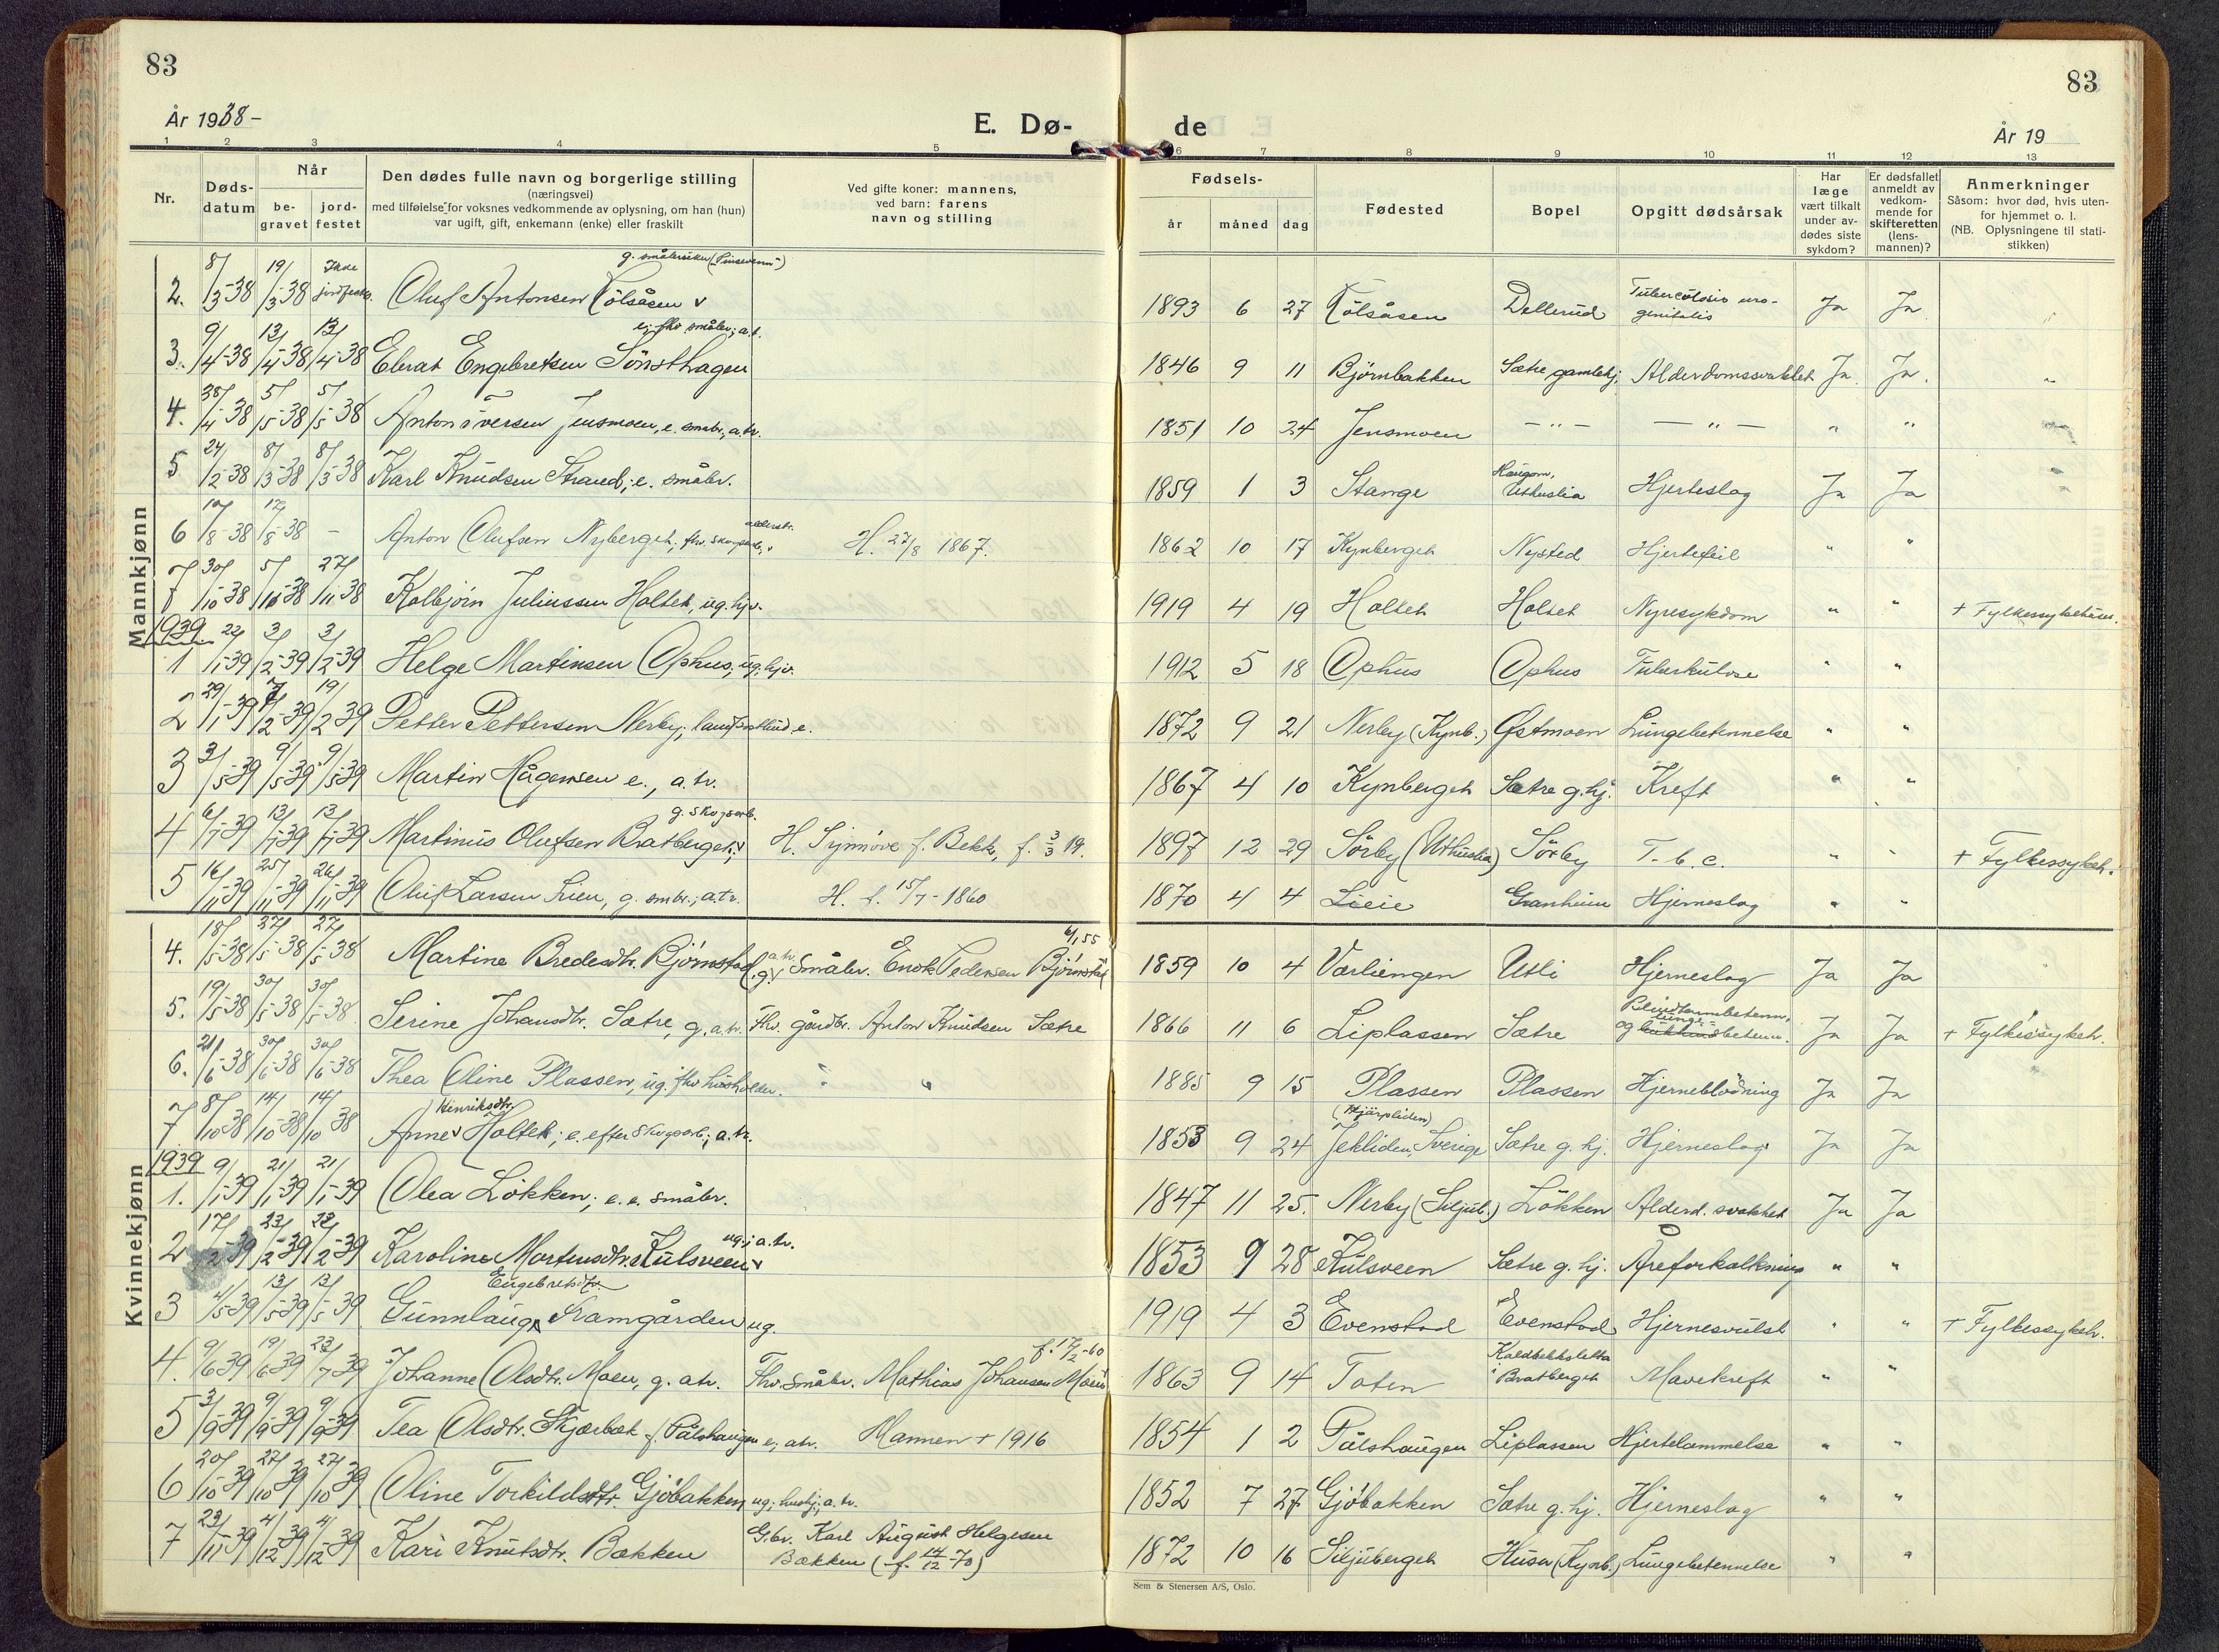 83
83
År 1938-
E. Dø-
de
År 19
1 2 3 4 5 6 7 8 9 10 11 12 13
Nr.
Døds-
datum
Når
be-
gravet
jord-
festet
Den dødes fulle navn og borgerlige stilling
(næringsvei)
med tilføielse for voksnes vedkommende av oplysning, om han (hun)
var ugift, gift, enkemann (enke) eller fraskilt
Ved gifte koner: mannens,
ved barn: farens
navn og stilling
Fødsels-
år måned dag
Fødested
Bopel
Opgitt dødsårsak
Har
læge
vært tilkalt
under av-
dødes siste
sykdom?
Er dødsfallet
anmeldt av
vedkom-
mende for
skifteretten
(lens-
mannen)?
Anmerkninger
Såsom: hvor død, hvis uten-
for hjemmet o. l.
(NB. Oplysningene til stati-
stikken)
Mannkjønn
2. 8/3-38 19/3-38 Ikke jordfestet. Oluf Antonsen Kölsåsen g. 1893 6 27 Kölsåsen Dellerud Tuberculosis uro-genitalis Ja Ja
3. 9/4-38 13/4-38 13/4-38 Ebrat Engebretsen Sönsthagen e; fhv småbr; a.t. 1846 9 11 Björnbakken Sætre gamlehj. Alderdomssvakhet Ja Ja
4. 28/4-38 5/5-38 5/5-38 Anton Iversen Jensmoen, e. småbr., a.tr. 1851 10 24 Jensmoen -"- -"- " "
5 24/2-38 8/3-38 8/3-38 Karl Knudsen Strand; e. småbr. 1859 1 3 Stange Haugom, Uthuslia Hjerteslag Ja Ja
6 10/8-38 17/8-38 - Anton Olufsen Nyberget; fhv. skogsarb., alderstr. H. 27/8 1867. 1862 10 17 Kynberget Nysted Hjertefeil " "
7 30/10-38 5/11-38 27/11-38 Kolbjörn Juliussen Holtet, ug. hjv. 1919 4 19 Holtet Holtet Nyresykdom " " + Fylkessykehuset.
1939
1 22/1-39 3/2-39 3/2-39 Helge Martinsen Ophus, ug. hjv. 1912 5 18 Ophus Ophus Tuberkulose " "
2 29/1-39 7/2-39 19/2-39 Petter Pettersen Nerby; landpostbud e. 1872 9 21 Nerby (Kynb.) Østmoen Lungebetennelse " "
3 3/5-39 9/5-39 9/5-39 Martin Hågensen e., a.tr. 1867 4 10 Kynberget Sætre g.hj. Kreft " "
4 6/7-39 13/7-39 13/7-39 Martinus Olufsen Bratberget; g. skogsarb. H. Synnöve f. Bekk, f. 3/3 19. 1897 12 29 Sörby (Uthuslia) Sörby T.b.c. " " + Fylkessykeh.
5 16/11-39 25/11-39 26/11-39 Oluf Larsen Lien, g. smbr.; a.tr. H. f. 15/7-1860 1870 4 4 Lieie Granheim Hjerneslag " "
Kvinnekjønn
4. 18/5-38 27/5-38 27/5-38 Martine Bredesdtr. Björnstad g. a.tr. Småbr. Enok Pedersen Björnstad 6/1 55 1859 10 4 Værliengen Utli Hjerneslag Ja Ja
5. 19/5-38 30/5-38 30/5-38 Serine Johansdtr. Sætre, g. a.tr. Fhv. gårdbr. Anton Knudsen Sætre 1866 11 6 Liplassen Sætre Blindtarmbetenn. og lunge-betenn. Ja Ja + Fylkessykeh.
6. 21/6-38 30/6-38 30/6-38 Thea Oline Plassen, ug. fhv husholder. " " 1885 9 15 Plassen Plassen Hjerneblödning Ja Ja
7 8/10-38 14/10-38 14/10-38 Anne Henriksdtr. Holtet; e. efter skogsarb; a.tr. 1853 9 24 Jekliden, Sverige (Hjärpliden) Sætre g.hj. Hjerneslag Ja Ja
1939
1. 9/1-39 21/1-39 21/1-39 Olea Lökken; e. e. småbr. 1847 11 25. Nerby (Siljub.) Lökken Alderd. svakhet Ja Ja
2 17/2-39 23/2-39 23/2-39 Karoline Mortensdtr. Kulsveen ug.; a.tr. 1853 9 28 Kulsveen Sætre g.hj. Åreforkalkning " "
3 4/5-39 13/5-39 13/5-39 Gunnlaug Engebretsdtr. Kramgården ug. 1919 4 3 Evenstad Evenstad Hjernesvulst " " + Fylkessykeh.
4. 9/6-39 19/6-39 23/7-39 Johanne Olsdtr. Moen, g. atr. Fhv. småbr. Mathias Johansen Moen f. 17/2-60 1863 9 14 Toten Koldbekksletta i Bratberget Mavekreft " "
5 3/9-39 9/9-39 9/9-39 Tea Olsdtr. Skjærbæk f. Pålshaugen e; atr. Mannen + 1916 1854 1 2 Pålshaugen Liplassen Hjertelammelse " "
6 20/10-39 27/10-39 27/10-39 Oline Torkildsdtr. Gjöbakken ug; hushj; a.tr. 1852 7 27 Gjöbakken Sætre g.hj. Hjerneslag " "
7 23/11-39 4/12-39 4/12-39 Kari Knutsdtr. Bakken G.br. Karl August Helgesen Bakken (f. 14/12-70) 1872 10 16 Siljuberget Huser (Kynb.) Lungebetennelse " "
Sem & Stenersen A/S, Oslo.